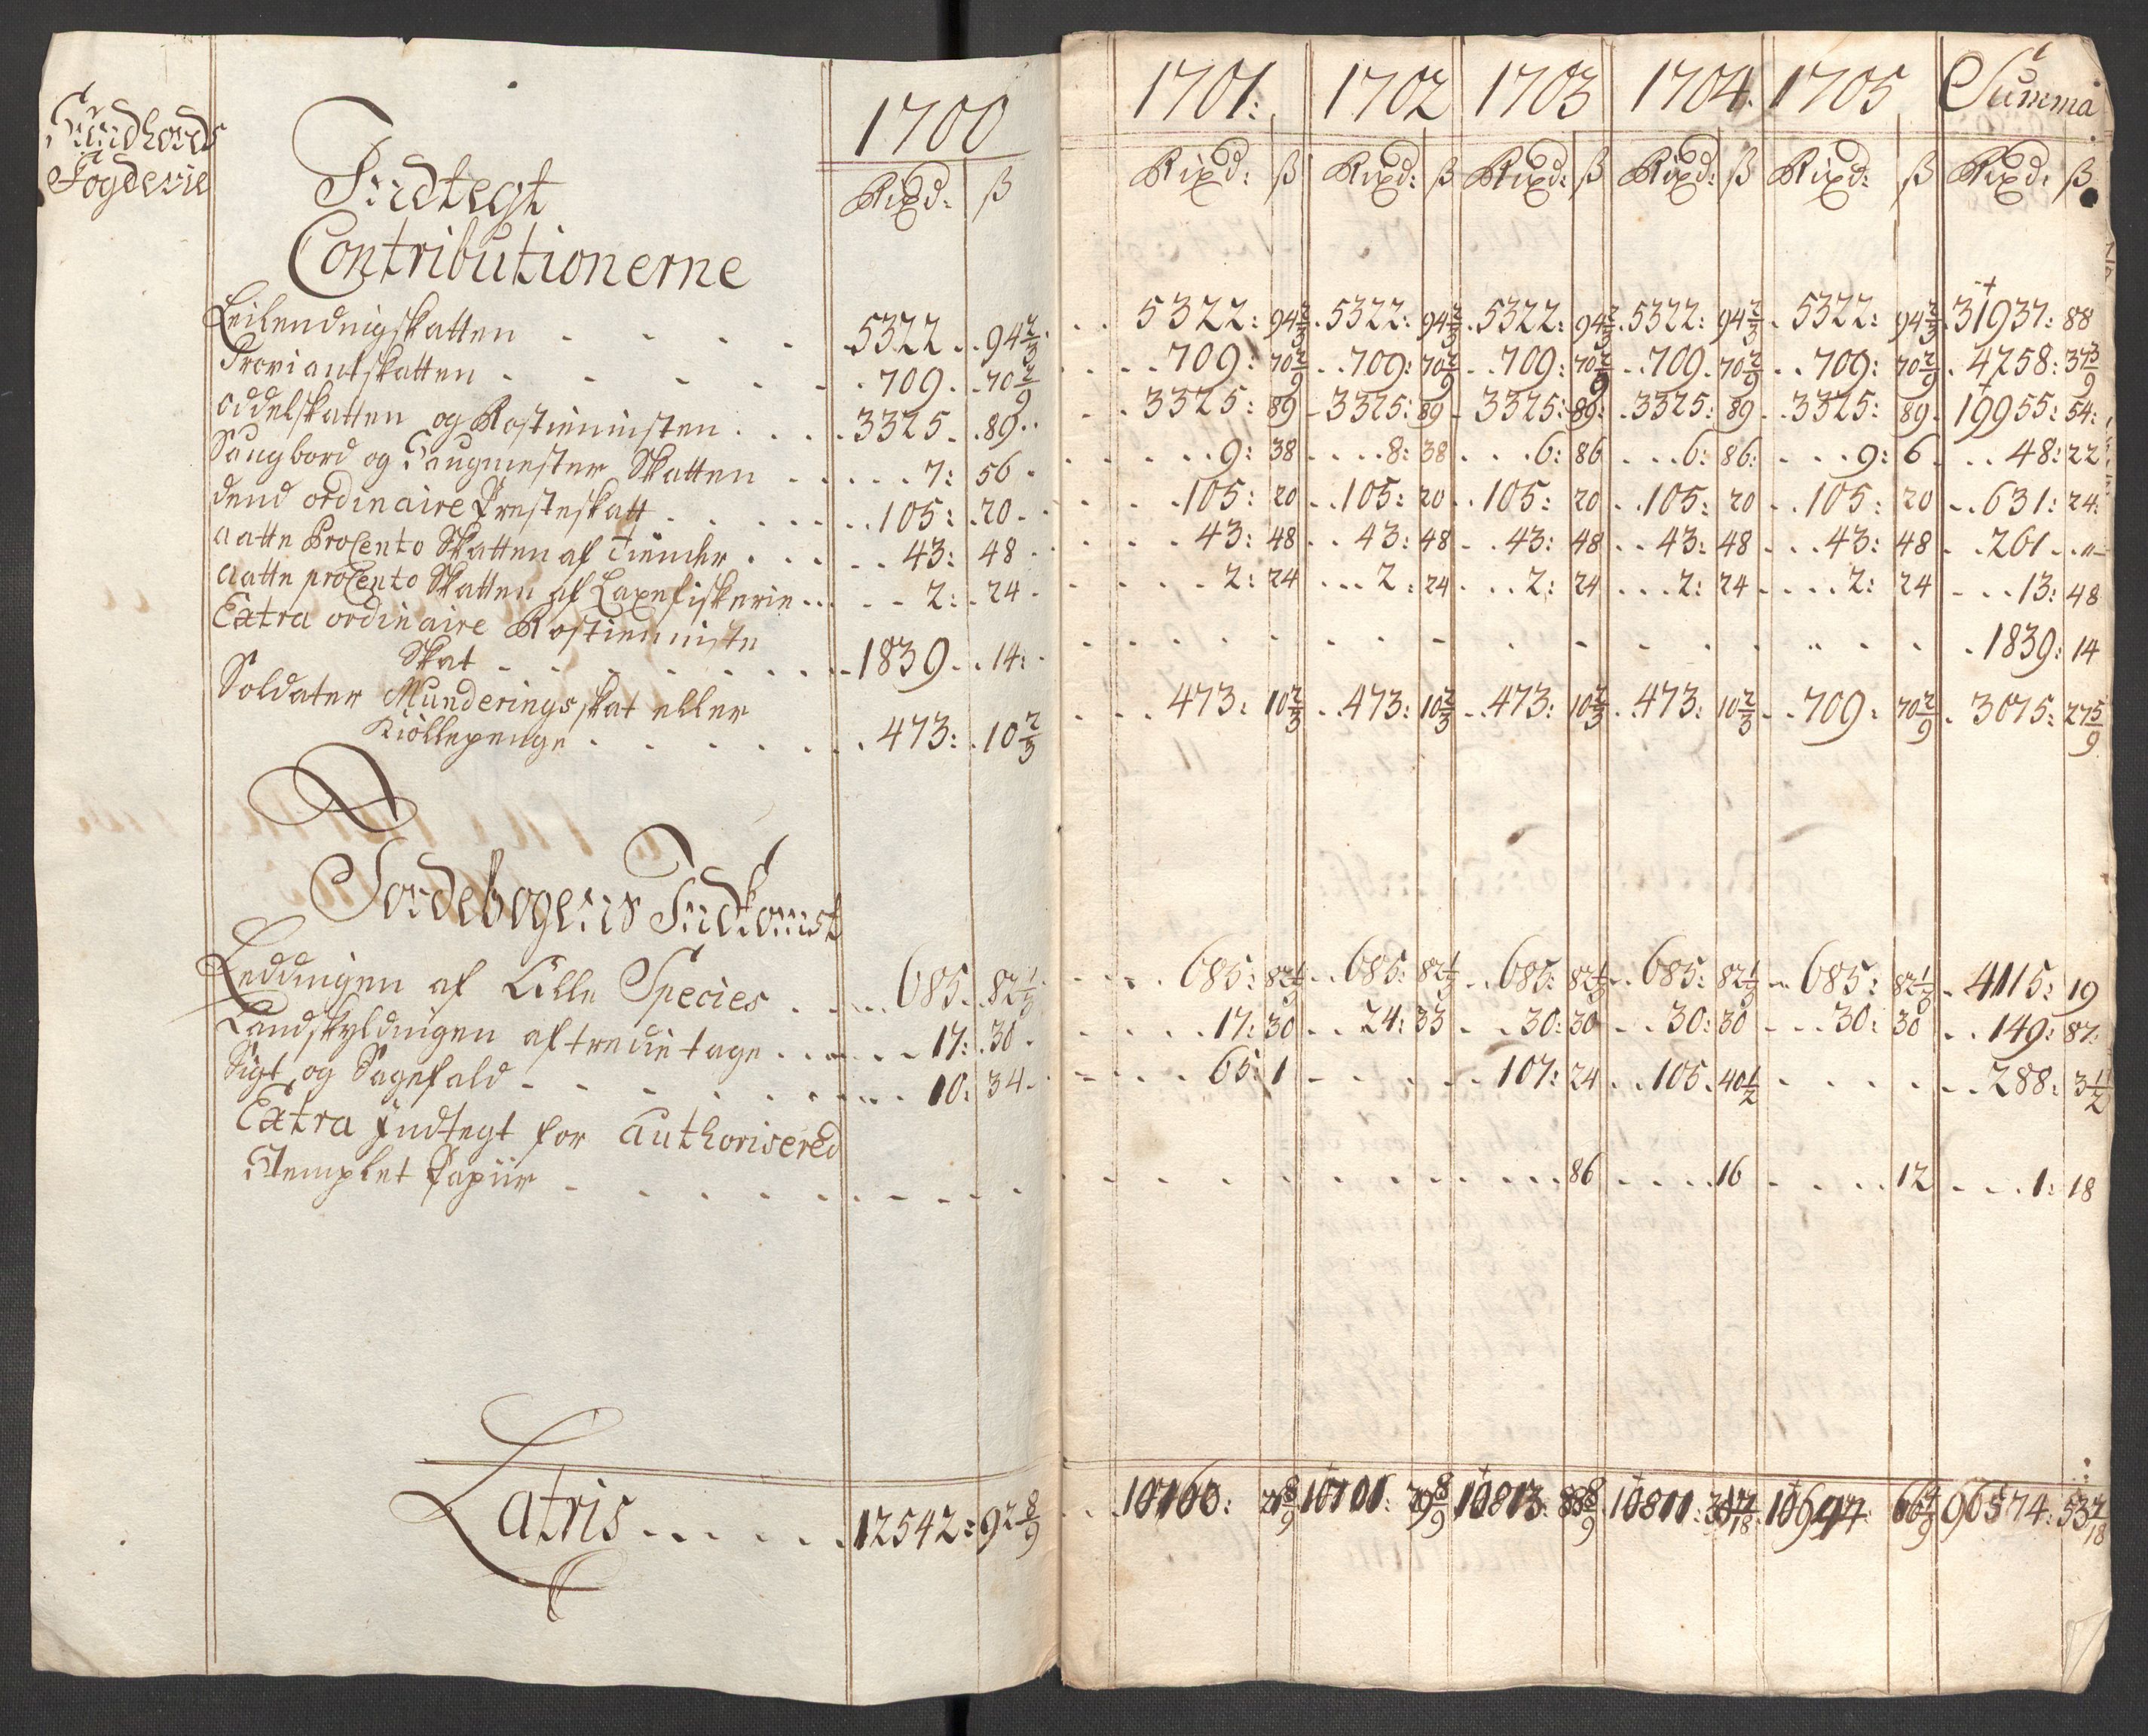 Sundhords
Fogderie
Indtegt
Contributionerne
1700 1701: 1702 1703 1704. 1705 Summa
Rixd: ß Rixd: ß Rixd: ß Rixd: ß Rixd: ß Rixd: ß Rixd: ß
Leilendingskatten 5322 94 2/3 5322: 94 2/3 5322: 94 2/3 5322: 94 2/3 5322: 94 2/3 5322: 94 2/3 31937: 88
Proviantskatten 709 70 2/9 709: 70 2/9 709: 70 2/9 709: 70 2/9 709 70 2/9 709: 70 2/9 4258: 37 3/9
Oddelskatten og Rostieninsten 3325 89 3325: 89 3325: 89 3325: 89: 3325: 89 3325: 89 19955: 54:
Saugbord og Saugmester Skatten 7: 56 9: 38 8: 38 6: 86 6: 86: 9: 6 48: 22
dend ordinaire Presteskatt 105: 20 105: 20 105: 20 105: 20 105: 20 105: 20 631: 24:
aatte ProCento Skatten af Tiender 43: 48 43: 48 43: 48 43: 48 43: 48 43: 48 261 "
aatte proCento Skatten af Laxefiskerie 2: 24 2: 24 2: 24 2: 24 2: 24 2: 24 13: 48
Extra ordinaire Rostienniste
Skat 1839 14: 1839: 14
Soldater Munderings skat eller
Kiollepenge 473: 10 2/3 473: 10 2/3 473: 10 2/3 473: 10 2/3 473: 10 2/3 709: 70 2/9 3075: 27 5/9
Jordebogens Indkomst
Leddingen af Alle Species 685. 82 1/3 685: 82 1/3 685: 82 1/3 685: 82 1/3 685: 82 1/3 685: 82 1/3 4115: 19
Landskyldingen aftredie tage 17: 30 17: 30 24: 33 30: 30 30: 30 30: 30 149: 87:
Sigt og Sagefald 10: 34 65: 1 107: 24 105 40 1/2 288: 3 1/2
Extra Indtegt for authorisered
Stemplet Papiir 86 16 12 1: 18
Latris 12542: 92 8/9 10160: 10701: 10813: 10811: 96574: 53 7/18